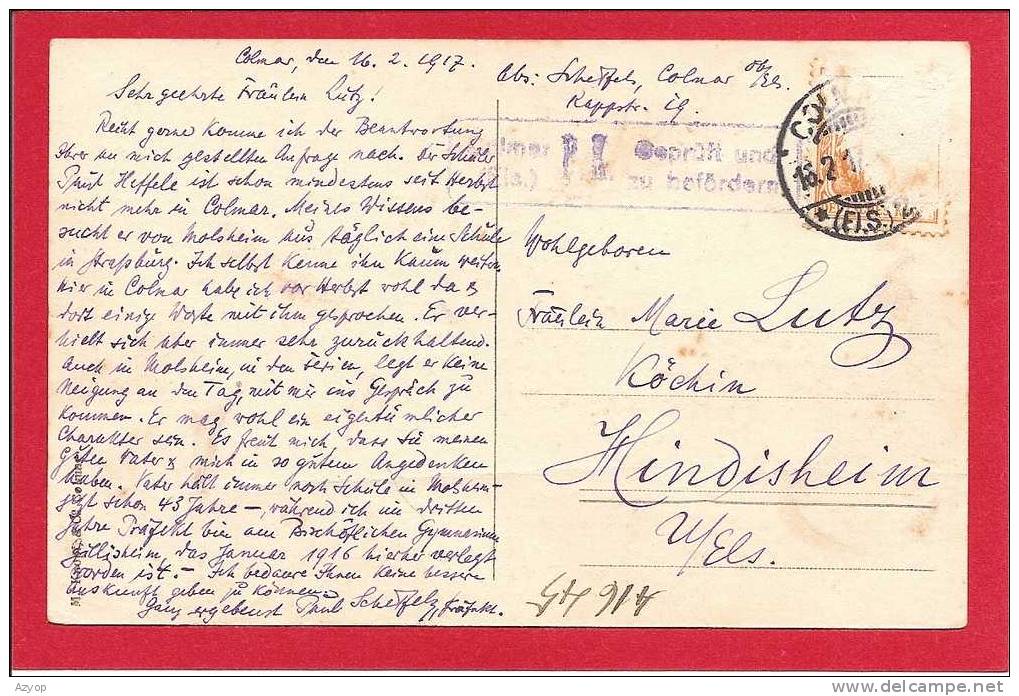 Colmar, den 16. 2. 1917.
Sehr geehrte Fräulein Lutz!
Recht gerne komme ich der Beantwortung
Ihrer an mich gestellten Anfrage nach. Der Schüler
Heffele ist schon mindestens seit Herbst
nicht mehr in Colmar. Meines Wissens be-
sucht er von Molsheim aus täglich eine Schule
in Straßburg. Ich selbst kenne ihn kaum weiter.
Hier in Colmar habe ich vor Herbst wohl da &
dort einige Worte mit ihm gesprochen. Er ver-
hielt sich aber immer sehr zurückhaltend.
Auch in Molsheim, in den Ferien, legt er keine
Neigung an den Tag, mit mir ins Gespräch zu
kommen. Er mag wohl ein eigentümlicher
Charakter sein. Es freut mich dass Sie meinen
guten Vater & mich in so gutem Angedenken
haben. Vater hält immer noch Schule in Molsheim
– jetzt schon 43 Jahre –, während ich im dritten
Jahre Präfekt bin am Bischöflichen Gymnasium
Zillisheim, das Januar 1916 hierher verlegt
worden ist. – Ich bedaure Ihnen keine bessere
Auskunft geben zu können.
Ganz ergebenst Paul Scheffels, Präfekt.
Abs: Scheffels, Colmar Ob/Els.
Kappstr. 19.
Geprüft und
(Els.) zu befördern
COLMAR
16.2.1
(ELS.)
Wohlgeboren
Fräulein Marie Lutz
Köchin
Hindisheim
U/Els.
Azyop
www.delcampe.net